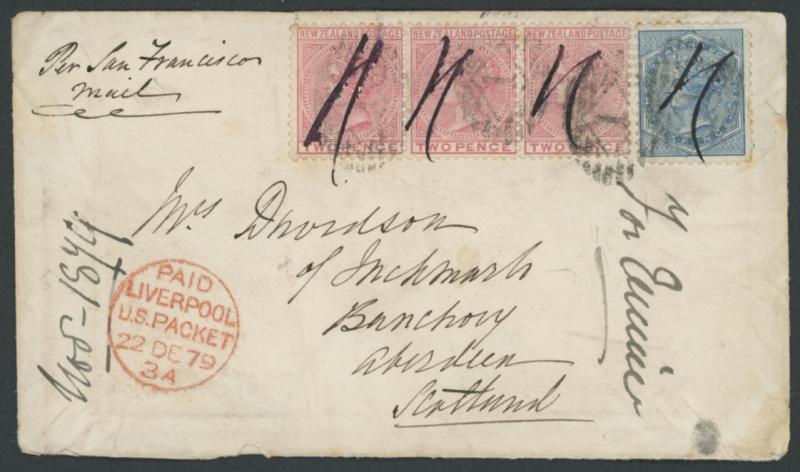 Per San Francisco
mail
NEW ZEALAND POSTAGE
TWO PENCE
NEW ZEALAND POSTAGE
TWO PENCE
NEW ZEALAND POSTAGE
TWO PENCE
Mrs Davidson
of Inchmarlo
Banchory
Aberdeen
Scotland
Nov - 1879
PAID
LIVERPOOL
U.S. PACKET
22 DE 79
3A